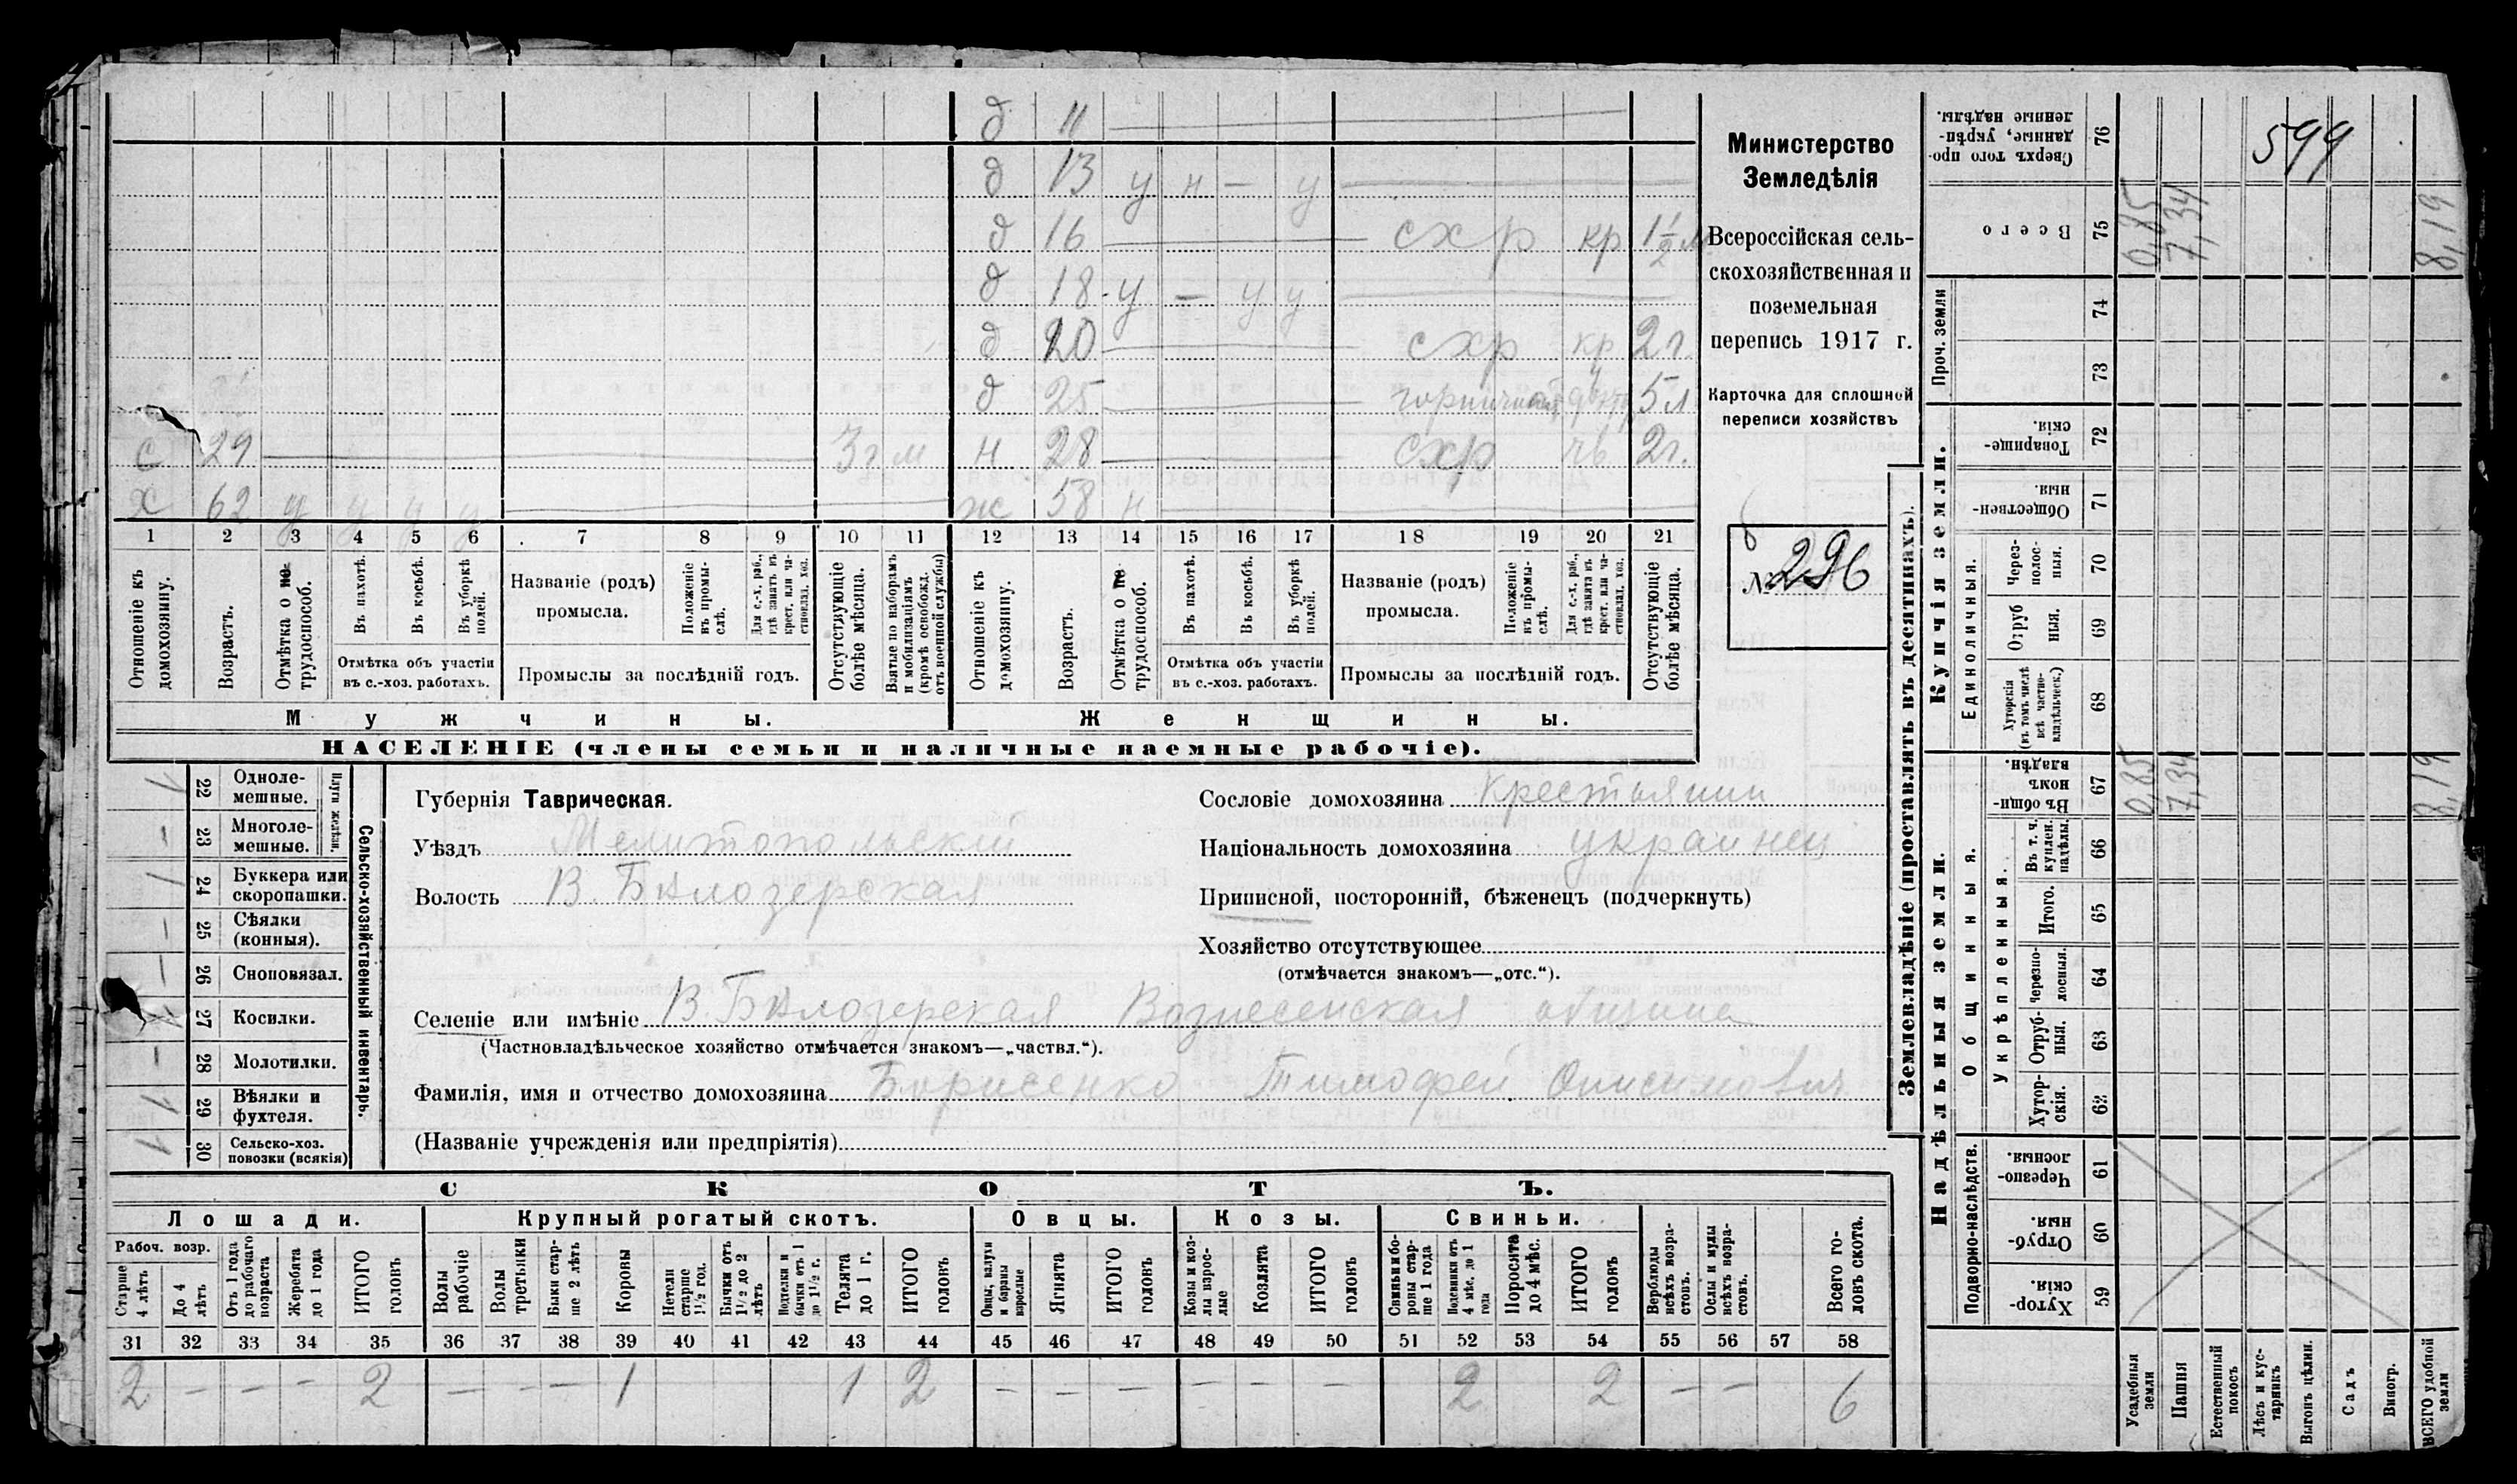 д 11
д 13 у н — у
д 16 схр кр 1½ м
д 18 у — у у
д 20 схр кр 2 г.
д 25 5 л
с 29 3 г м н 28 схр чв 2 г.
х 62 у у у у ж 58 н
1 2 3 4 5 6 7 8 9 10 11 12 13 14 15 16 17 18 19 20 21
Отношеніе къ домохозяину.
Возрастъ.
Отмѣтка о не-трудоспособ.
Въ пахотѣ.
Въ косьбѣ.
Въ уборкѣ полей.
Отмѣтка объ участіи въ с.-хоз. работахъ.
Названіе (родъ) промысла.
Положеніе въ промыслѣ.
Для с.-х. раб., гдѣ занятъ въ крест. или частновлад. хоз.
Промыслы за послѣдній годъ.
Отсутствующіе болѣе мѣсяца.
Взятые по наборамъ и мобилизаціямъ (кромѣ освобожд. отъ военной службы)
Отношеніе къ домохозяину.
Возрастъ.
Отмѣтка о не-трудоспособ.
Въ пахотѣ.
Въ косьбѣ.
Въ уборкѣ полей.
Отмѣтка объ участіи въ с.-хоз. работахъ.
Названіе (родъ) промысла.
Положеніе въ промыслѣ.
Для с.-х. раб., гдѣ занята въ крест. или частновлад. хоз.
Промыслы за послѣдній годъ.
Отсутствующіе болѣе мѣсяца.
Мужчины.
Женщины.
НАСЕЛЕНІЕ (члены семьи и наличные наемные рабочіе).
Министерство
Земледѣлія
Всероссійская сель-
скохозяйственная и
поземельная
перепись 1917 г.
Карточка для сплошной
переписи хозяйствъ
№ 296
Сельско-хозяйственный инвентарь.
Плуги желѣзн.
22 Однолемешные. 1
23 Многолемешные. —
24 Буккера или скоропашки. 1
25 Сѣялки (конныя). —
26 Сноповязал. —
27 Косилки. 1
28 Молотилки. —
29 Вѣялки и фухтеля. 1
30 Сельско-хоз. повозки (всякія) 1
Губернія Таврическая.
Уѣздъ Мелитопольскій
Волость В. Бѣлозерская
Сословіе домохозяина Крестьянин
Національность домохозяина украинец
Приписной, посторонній, бѣженецъ (подчеркнуть)
Хозяйство отсутствующее
(отмѣчается знакомъ—„отс.“).
Селеніе или имѣніе В. Бѣлозерская Вознесенская община
(Частновладѣльческое хозяйство отмѣчается знакомъ—„частвл.“).
Фамилія, имя и отчество домохозяина Борисенко Тимофей Онисимович
(Названіе учрежденія или предпріятія)
СКОТЪ.
Лошади. Крупный рогатый скотъ. Овцы. Козы. Свиньи.
Рабоч. возр.
Старше 4 лѣтъ
До 4 лѣтъ
Отъ 1 года до рабочаго возраста
Жеребята до 1 года
ИТОГО головъ
Волы рабочіе
Волы третьяки
Быки старше 2 лѣтъ
Коровы
Нетели старше 1½ год.
Бычки отъ 1½ до 2 лѣтъ
Подтелки и бычки отъ 1 до 1½ г.
Телята до 1 г.
ИТОГО головъ
Овцы, валухи и бараны взрослые
Ягнята
ИТОГО головъ
Козы и козлы взрослые
Козлята
ИТОГО головъ
Свиньи и бороны старше 1 года
Подсвинки отъ 4 мѣс. до 1 года
Поросята до 4 мѣс.
ИТОГО головъ
Верблюды всѣхъ возрастовъ.
Ослы и мулы всѣхъ возрастовъ.
Всего головъ скота.
31 32 33 34 35 36 37 38 39 40 41 42 43 44 45 46 47 48 49 50 51 52 53 54 55 56 57 58
2 — — — 2 — — — 1 1 2 — — — — — — 2 2 — — 6
Землевладѣніе (проставлять въ десятинахъ).
Надѣльныя земли. Купчія земли. Проч. земли
599
Сверхъ того проданные, укрѣпленные надѣлы. 76
Всего 75 0,85 7,34 8,19
74
73
Товарищескія. 72
Общественныя. 71
Единоличныя.
Черезполосныя. 70
Отрубныя. 69
Хуторскія (въ томъ числѣ всѣ частновладѣльческ.) 68
Общинныя.
Въ общиномъ владѣн. 67 0,85 7,34 8,19
Укрѣпленныя.
Въ т. ч. куплен. надѣлы. 66
Итого. 65
Черезполосныя. 64
Отрубныя. 63
Хуторскія. 62
Подворно-наслѣдств.
Черезполосныя. 61
Отрубныя. 60
Хуторскія. 59
Усадебныя земли
Пашня
Естественный покосъ
Лѣсъ и кустарникъ
Выгонъ цѣлин.
Садъ
Виногр.
ВСЕГО удобной земли